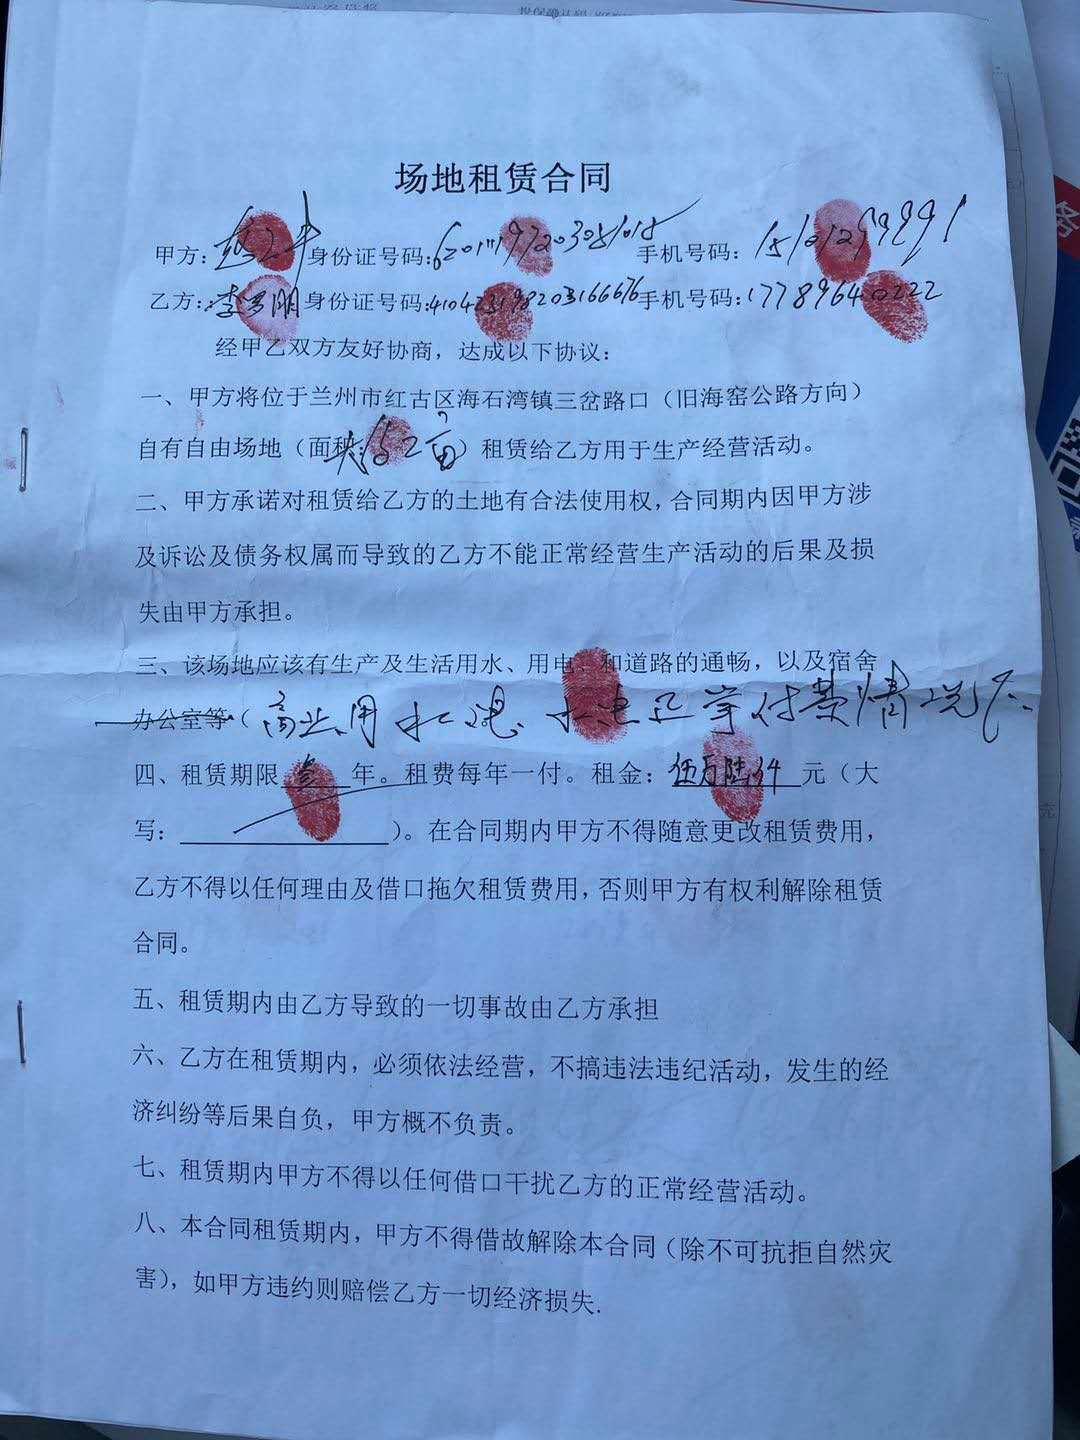 场地租赁合同
甲方: 身份证号码: 手机号码:
乙方: 李 朋 身份证号码:410423198203166676 手机号码:17789640222
经甲乙双方友好协商，达成以下协议：
一、甲方将位于兰州市红古区海石湾镇三岔路口（旧海窑公路方向）
自有自由场地（面积: 亩）租赁给乙方用于生产经营活动。
二、甲方承诺对租赁给乙方的土地有合法使用权，合同期内因甲方涉
及诉讼及债务权属而导致的乙方不能正常经营生产活动的后果及损
失由甲方承担。
三、该场地应该有生产及生活用水、用电、和道路的通畅，以及宿舍
办公室等（商业用水 正常付费情况下
四、租赁期限 叁 年。租费每年一付。租金：伍万陆仟 元（大
写： ）。在合同期内甲方不得随意更改租赁费用，
乙方不得以任何理由及借口拖欠租赁费用，否则甲方有权利解除租赁
合同。
五、租赁期内由乙方导致的一切事故由乙方承担
六、乙方在租赁期内，必须依法经营，不搞违法违纪活动，发生的经
济纠纷等后果自负，甲方概不负责。
七、租赁期内甲方不得以任何借口干扰乙方的正常经营活动。
八、本合同租赁期内，甲方不得借故解除本合同（除不可抗拒自然灾
害），如甲方违约则赔偿乙方一切经济损失.